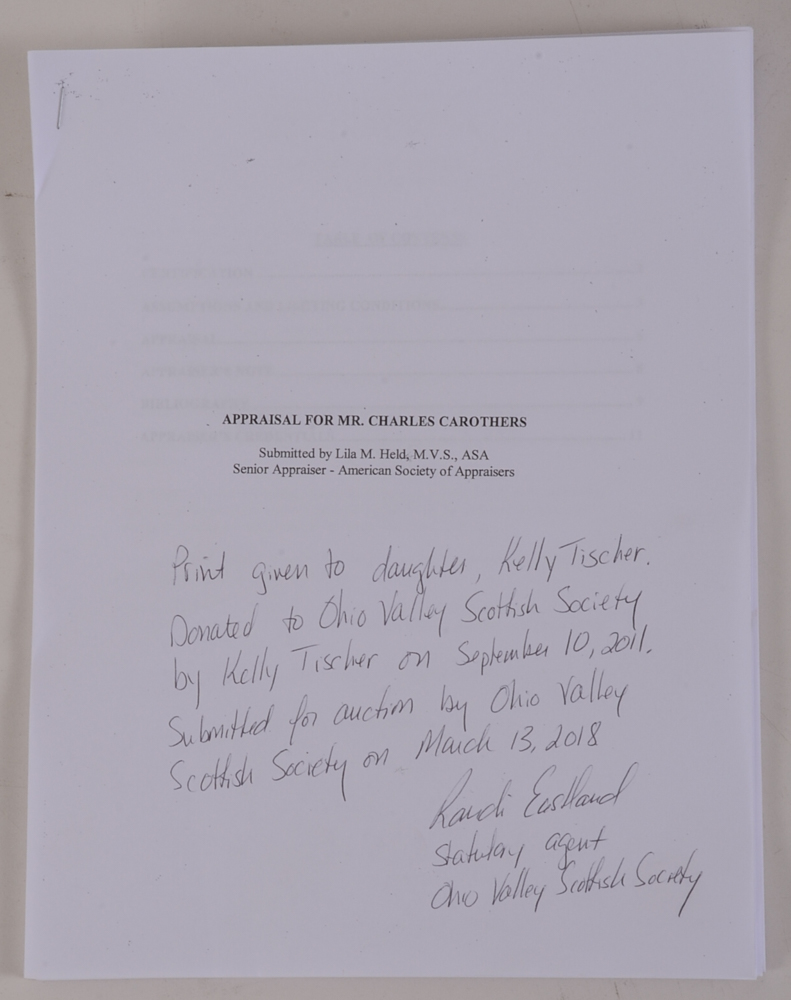 APPRAISAL FOR MR. CHARLES CAROTHERS
Submitted by Lila M. Held, M.V.S., ASA
Senior Appraiser - American Society of Appraisers
Print given to daughter, Kelly Tischer.
Donated to Ohio Valley Scottish Society
by Kelly Tischer on September 10, 2011.
Submitted for auction by Ohio Valley
Scottish Society on March 13, 2018
Randi Eastland
Statutory agent
Ohio Valley Scottish Society